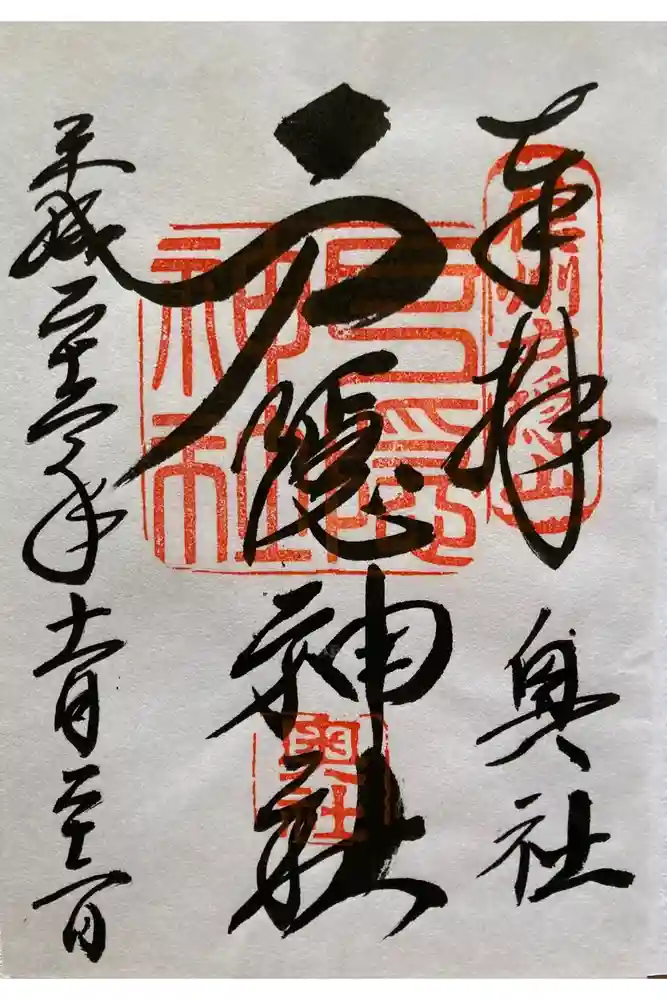 奉拝
奥社
信州戸隠山
戸隠神社
戸隠神社
奥社
平成二十年十一月二十一日